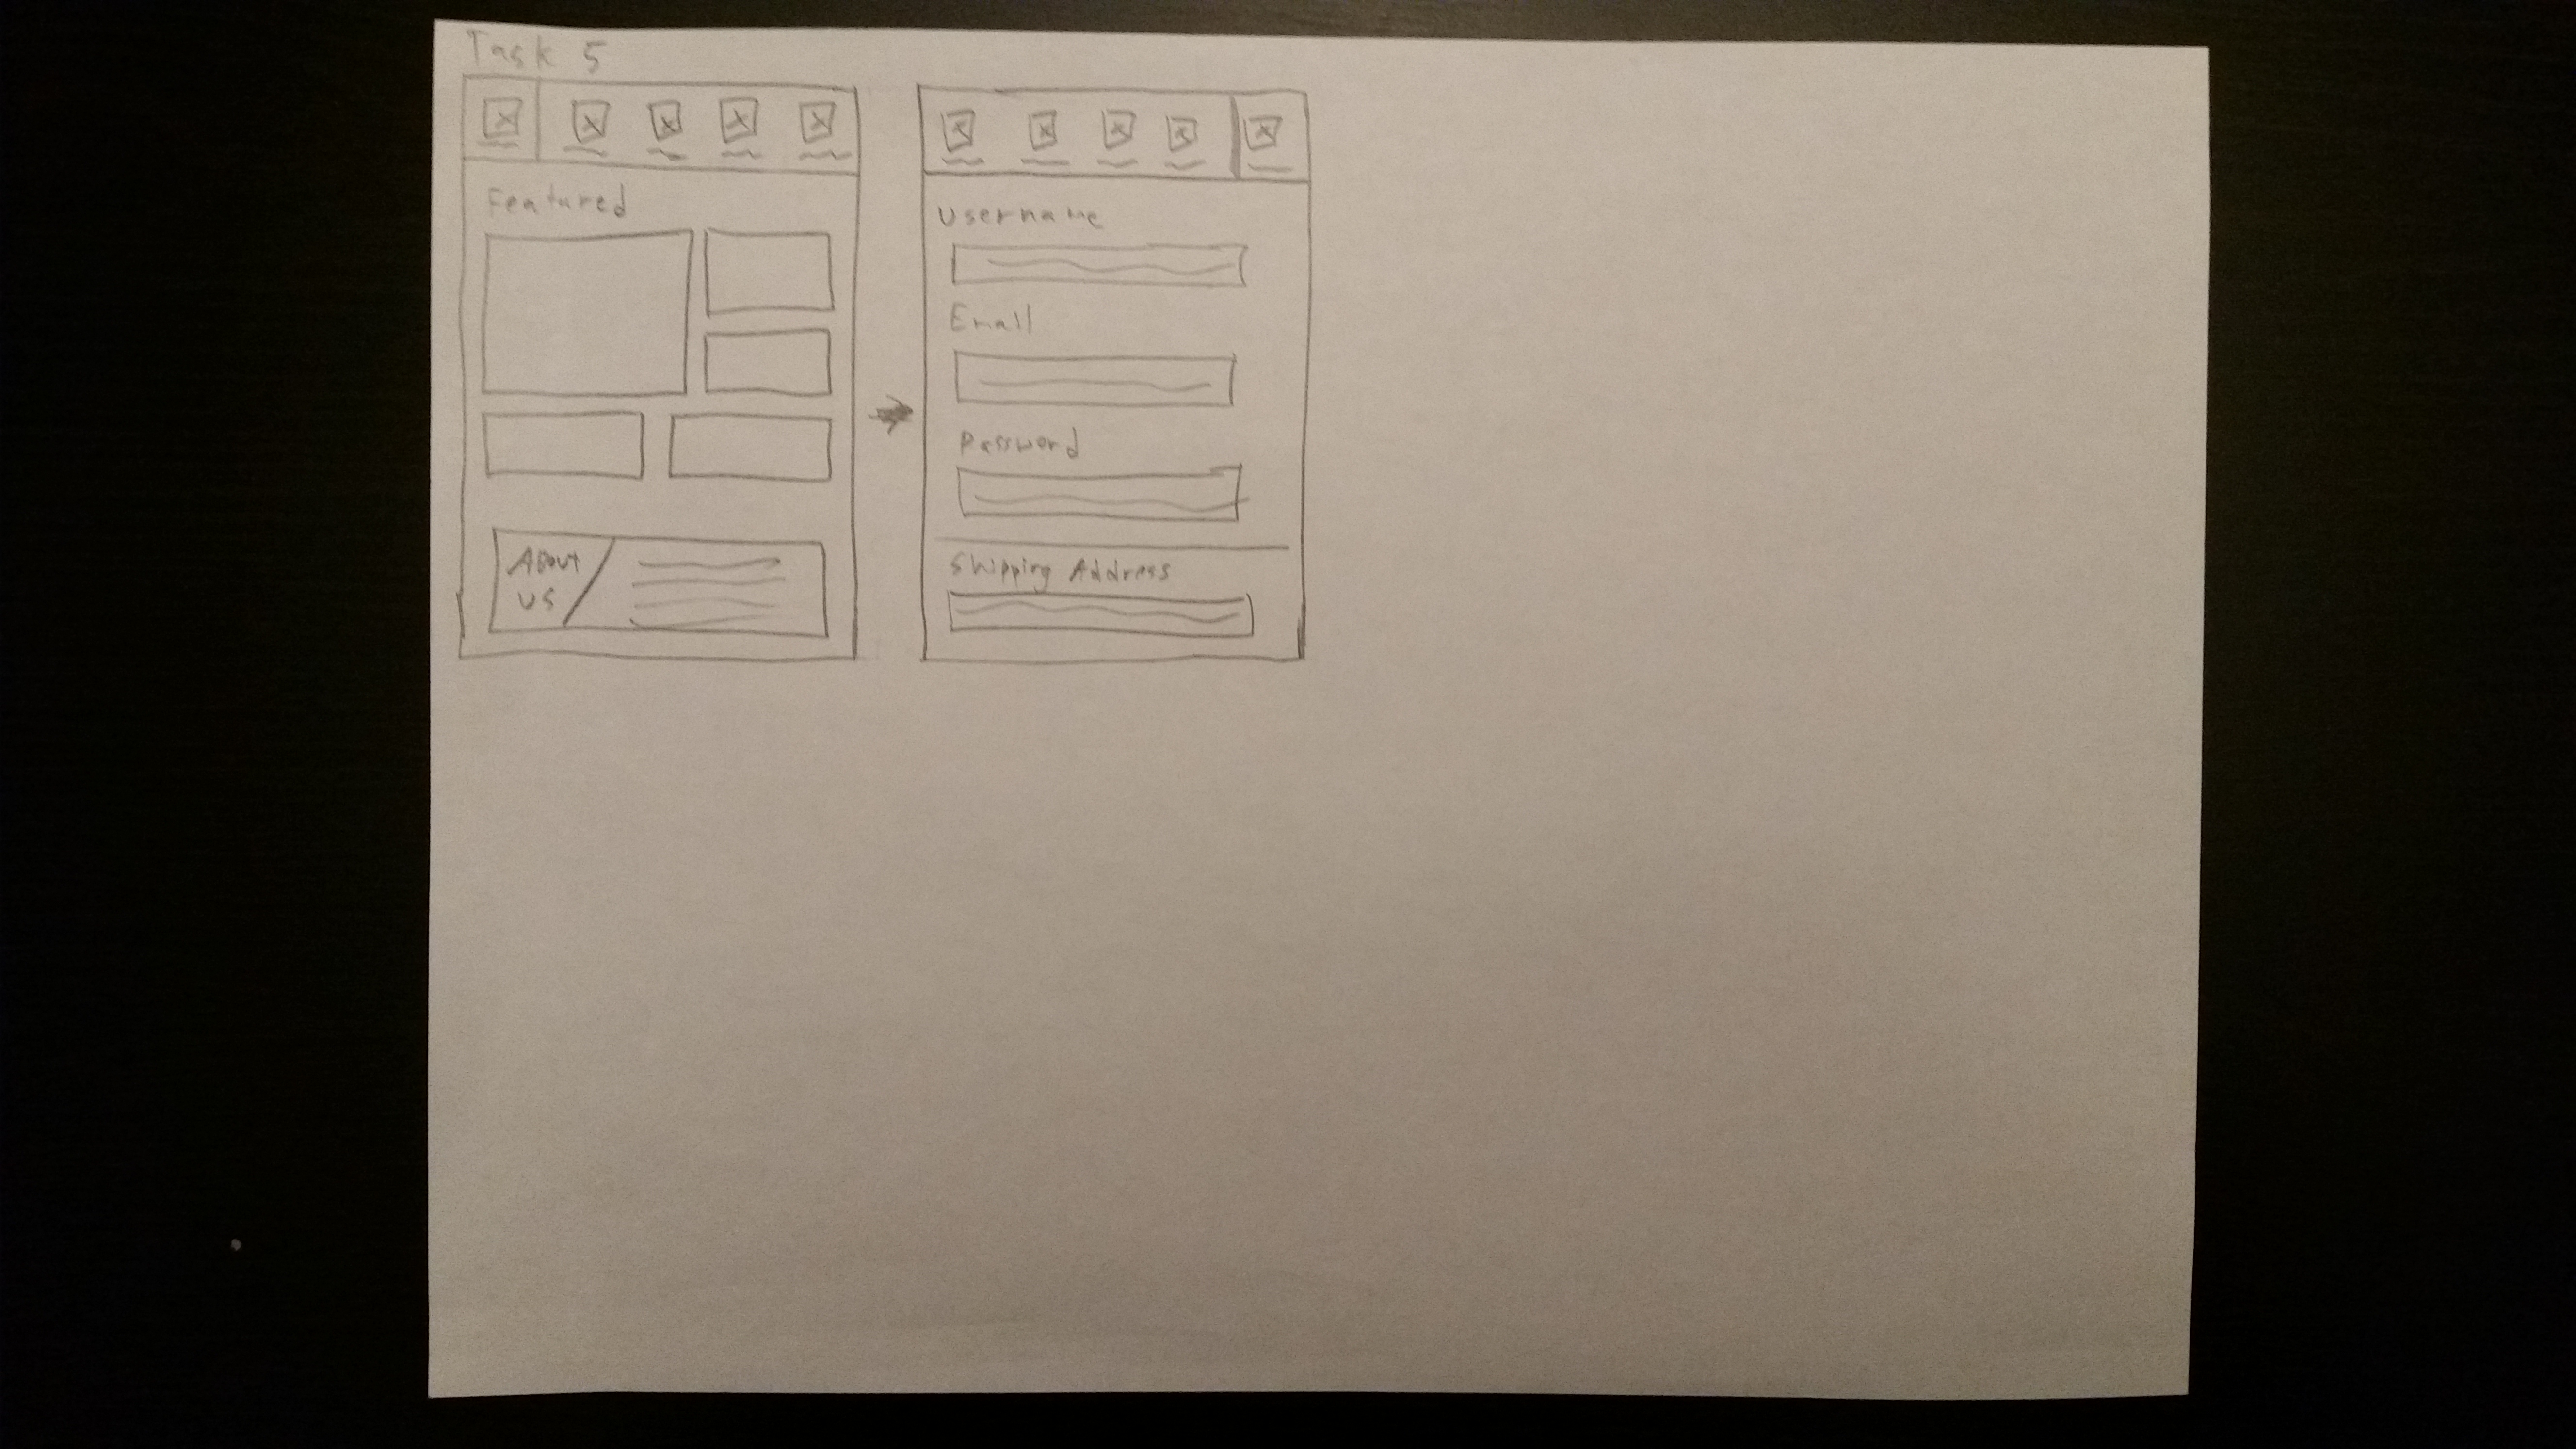 Task 5
Featured
About
us
Username
Email
Password
Shipping Address